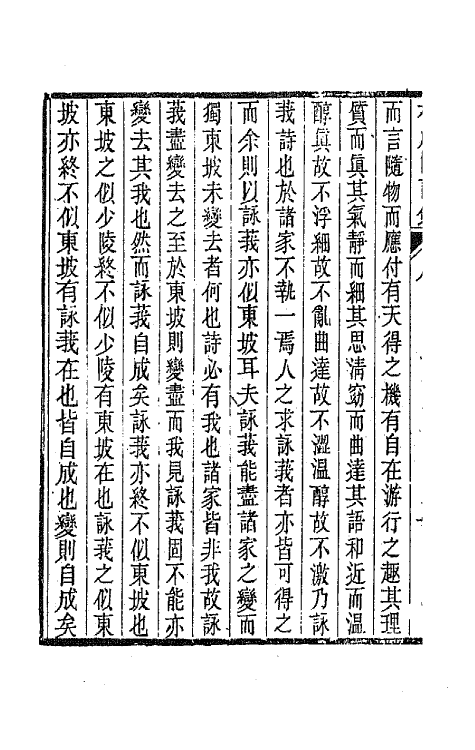 而言隨物而應付有天得之機有自在游行之趣其理
質而眞其氣靜而細其思淸窈而曲達其語和近而溫
醇眞故不浮細故不亂曲達故不澀溫醇故不激乃詠
莪詩也於諸家不執一焉人之求詠莪者亦皆可得之
而余則以詠莪亦似東坡耳夫詠莪能盡諸家之變而
獨東坡未變去者何也詩必有我也諸家皆非我故詠
莪盡變去之至於東坡則變盡而我見詠莪固不能亦
變去其我也然而詠莪自成矣詠莪亦終不似東坡也
東坡之似少陵終不似少陵有東坡在也詠莪之似東
坡亦終不似東坡有詠莪在也皆自成也變則自成矣